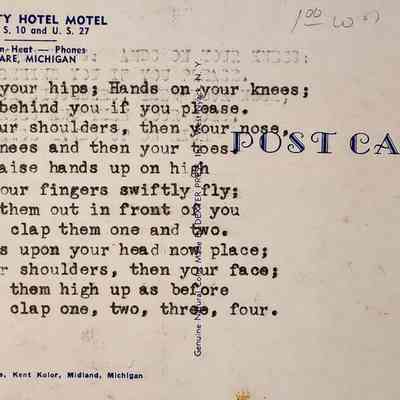 TY HOTEL MOTEL
S. 10 and U. S. 27
n-Heat — Phones
ARE, MICHIGAN
1 00
your hips; Hands on your knees;
behind you if you please.
ur shoulders, then your nose,
nees and then your toes.
POST CA
aise hands up on high
our fingers swiftly fly;
them out in front of you
clap them one and two.
s upon your head now place;
r shoulders, then your face;
them high up as before
clap one, two, three, four.
Genuine Natural Color Made by DEXTER PRESS N. Y.
e, Kent Kolor, Midland, Michigan